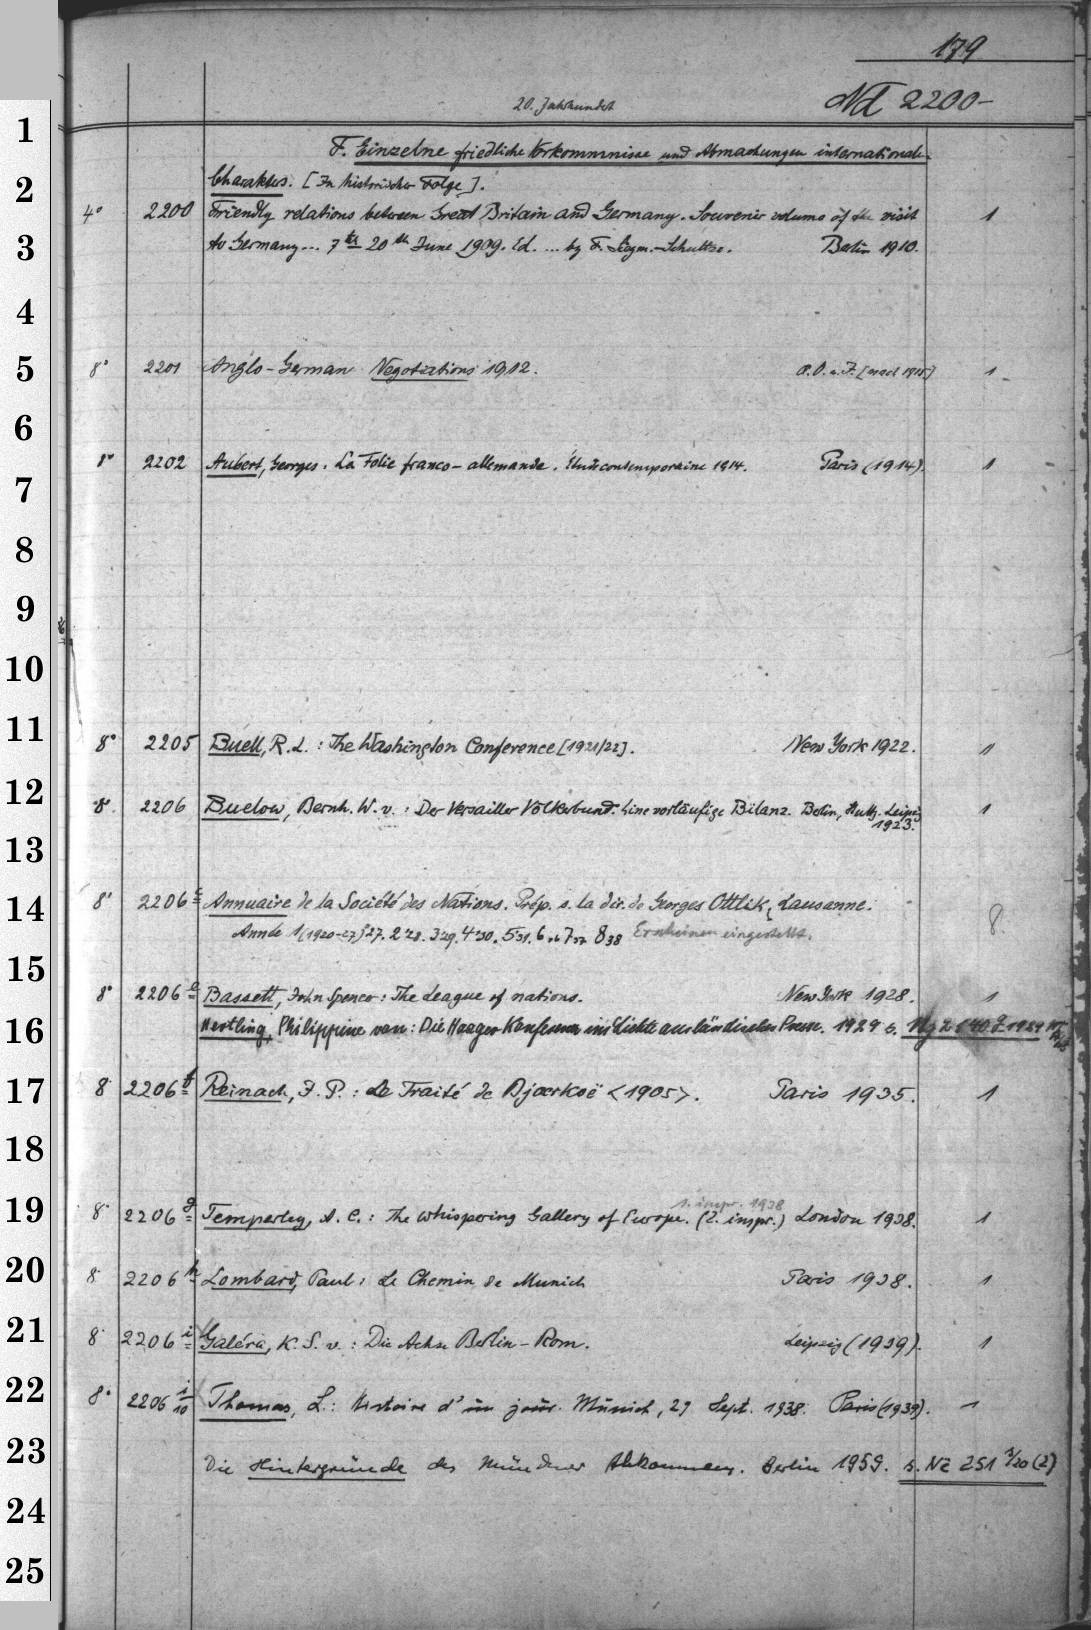 179
20. Jahrhundert Nd 2200-
1
F. Einzelne friedliche Vorkommnisse und Abmachungen internationalen
2
Charakters. [In historischer Folge].
4° 2200 Friendly relations between Great Britain and Germany. Souvenir volume of the visit 1
3
to Germany... 7th 20th June 1909. Ed. ... by F. Siegm.-Schultze. Berlin 1910.
4
5
8° 2201 Anglo-German Negotiations 1912. o. O. u. J. [nach 1918] 1
6
8° 2202 Aubert, Georges: La Folie franco-allemande. Étude contemporaine 1914. Paris (1914). 1
7
8
9
10
11
8° 2205 Buell, R. L.: The Washington Conference [1921/22]. New York 1922. 1
12
8° 2206 Buelow, Bernh. W. v.: Der Versailler Völkerbund. Eine vorläufige Bilanz. Berlin, Stuttg. Leipzig 1
1923.
13
14
8° 2206 c Annuaire de la Société des Nations. Prép. s. la dir. de Georges Ottlik, Lausanne. 8.
Année 1(1920-27)27. 2 28. 3 29. 4 30. 5 31. 6 36 7 37 8 38 Erscheinen eingestellt.
15
8° 2206 e Bassett, John Spencer: The League of nations. New York 1928. 1
16
Hertling, Philippine von: Die Haager Konferenz im Lichte ausländischer Presse. 1929 s.
17
8° 2206 f Reinach, J. P.: Le Traité de Bjoerkoë <1905>. Paris 1935. 1
18
1. impr. 1938
19
8° 2206 g Temperley, A. C.: The whispering Gallery of Europe. (2. impr.) London 1938. 1
20
8° 2206 h Lombard, Paul: Le Chemin de Munich Paris 1938. 1
21
8° 2206 i Galéra, K. S. v.: Die Achse Berlin-Rom. Leipzig (1939). 1
22
8° 2206 i/10 Thomas, L.: Histoire d'un jour. Munich, 29 Sept. 1938. Paris (1939). 1
23
Die Hintergründe des Münchner Abkommens. Berlin 1959. s. Nz 251 3/20 (2)
24
25